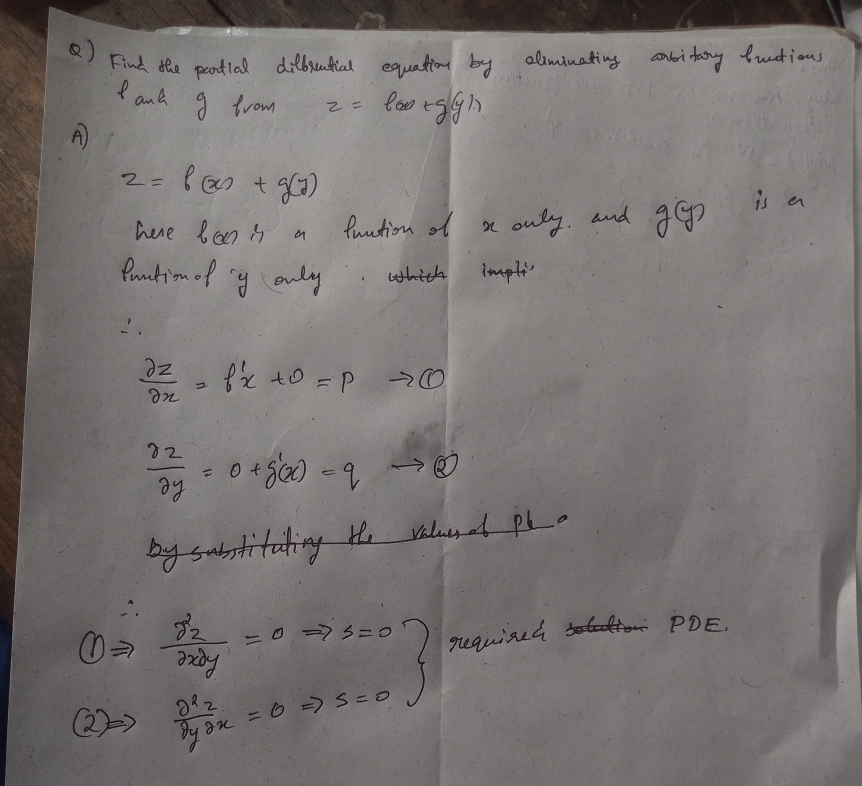 Q) Find the partial differential equation by eliminating arbitary functions
f and g from z = f(x) + g(y)
A)
z = f(x) + g(y)
here f(x) is a function of x only. and g(y) is a
function of y only . which impli
∴
∂z/∂x = f'x + 0 = p → ①
∂z/∂y = 0 + g'(x) = q → ②
By substituting the values of p
∴
① ⇒ ∂²z/∂x∂y = 0 ⇒ s = 0
required solution PDE.
(2) ⇒ ∂²z/∂y∂x = 0 ⇒ s = 0